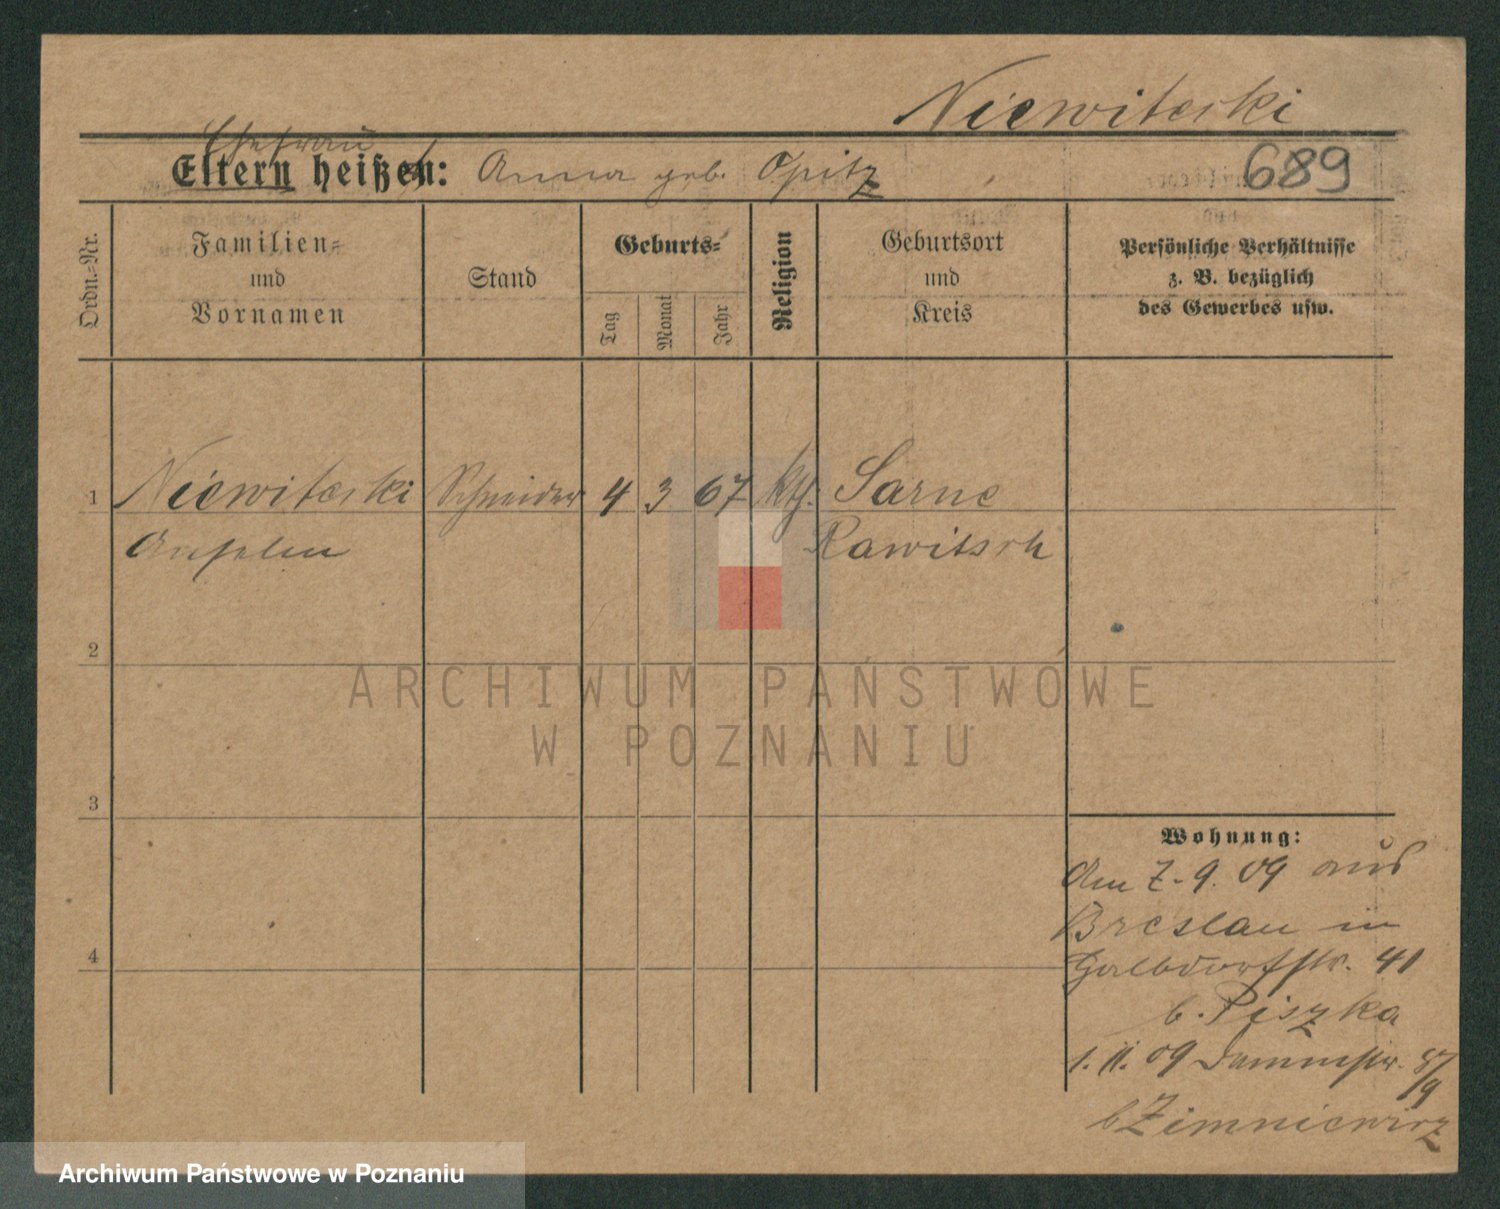 Niewiteski
Ehefrau
Eltern heißen: Anna geb. Opitz
689
Ordn.-Nr.
Familien-
und
Vornamen
Stand
Geburts-
Tag
Monat
Jahr
Religion
Geburtsort
und
Kreis
Persönliche Verhältnisse
z. B. bezüglich
des Gewerbes usw.
1 Niewiteski Schneider 4 3 67 kth. Sarne
Anselm Rawitsch
2
3
4
Wohnung:
Am 7.9.09 aus
Breslau in
41
b. Piszka
1.11.09 Dammstr. 8/9
b Zimniewicz
ARCHIWUM PAŃSTWOWE
W POZNANIU
Archiwum Państwowe w Poznaniu